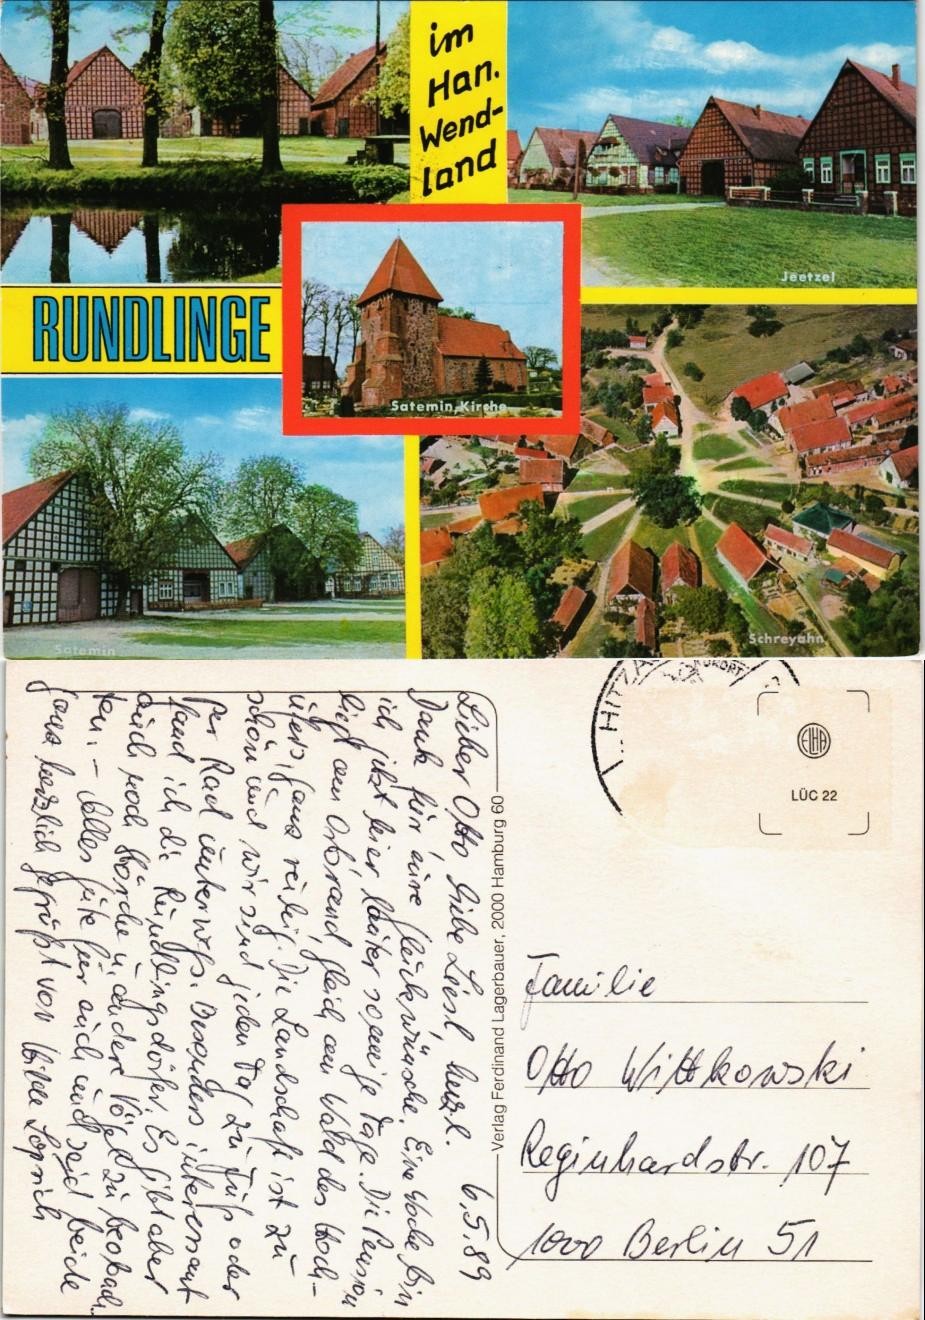 im
Han.
Wend-
land
Jeetzel
RUNDLINGE
Satemin Kirche
Satemin
Schreyahn
HITZA
KURORT
ELHA
LÜC 22
Verlag Ferdinand Lagerbauer, 2000 Hamburg 60
6.5.89
Lieber Otto liebe Liesl herzl.
Dank für eure Glückwünsche. Eine Woche bin
ich jetzt hier lauter sonnige Tage. Die Pension
liegt am Ortsrand, gleich am Wald des Hoch-
ufers, ganz ruhig. Die Landschaft ist zu
schön und wir sind jeden Tag zu Fuß oder
per Rad unterwegs. Besonders interessant
fand ich die Rundlingsdörfer. Es gibt aber
auch noch Störche u. andere Vögel zu beobach-
ten. – Alles Gute für euch und seid beide
ganz herzlich gegrüßt von
Familie
Otto Wittkowski
Reginhardstr. 107
1000 Berlin 51